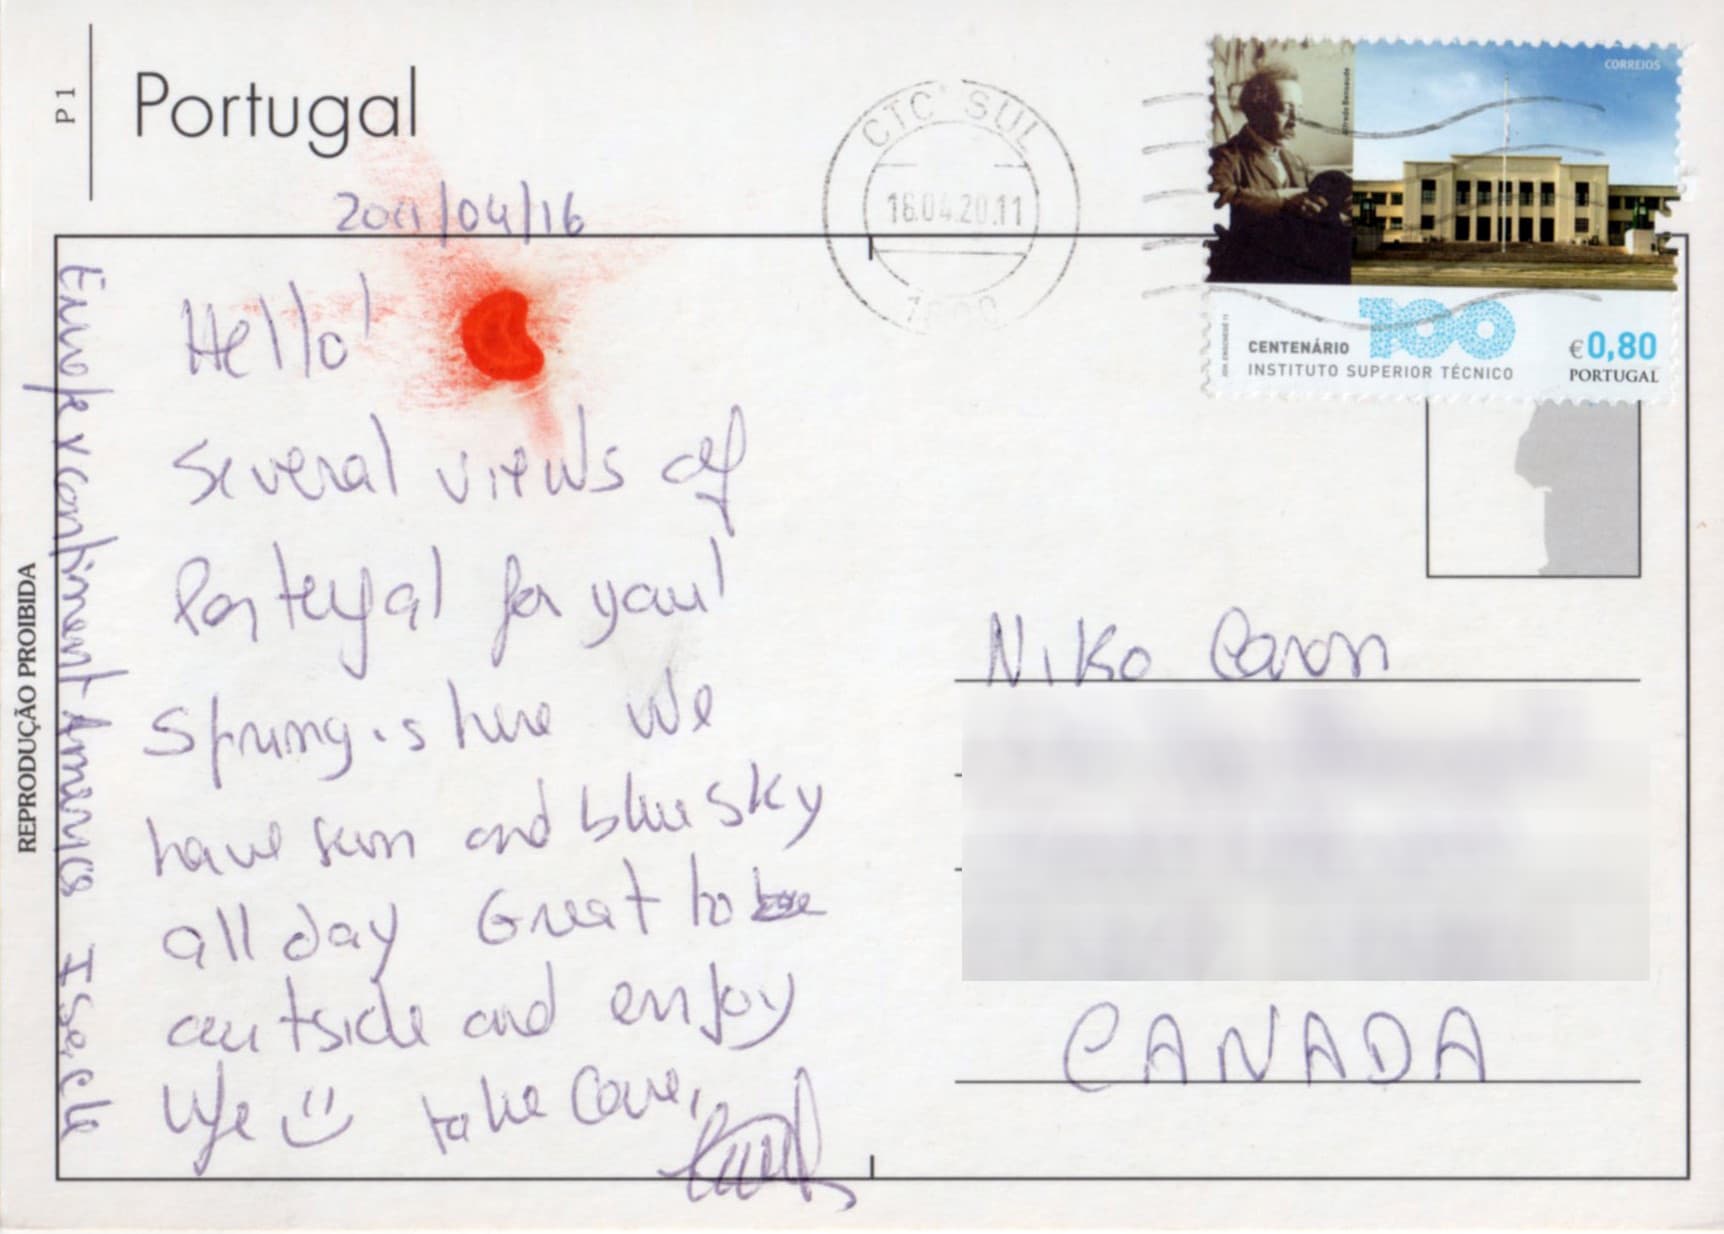 P 1
Portugal
2011/04/16
CTC SUL
18.04.20.11
CORREIOS
Alfredo Bensaude
CENTENÁRIO 100
INSTITUTO SUPERIOR TÉCNICO
€0,80
PORTUGAL
REPRODUÇÃO PROIBIDA
Hello!
Several views of
Portugal for you!
Spring is here We
have sun and blue sky
all day Great to be
outside and enjoy
life take care,
continent America
Niko Caron
CANADA